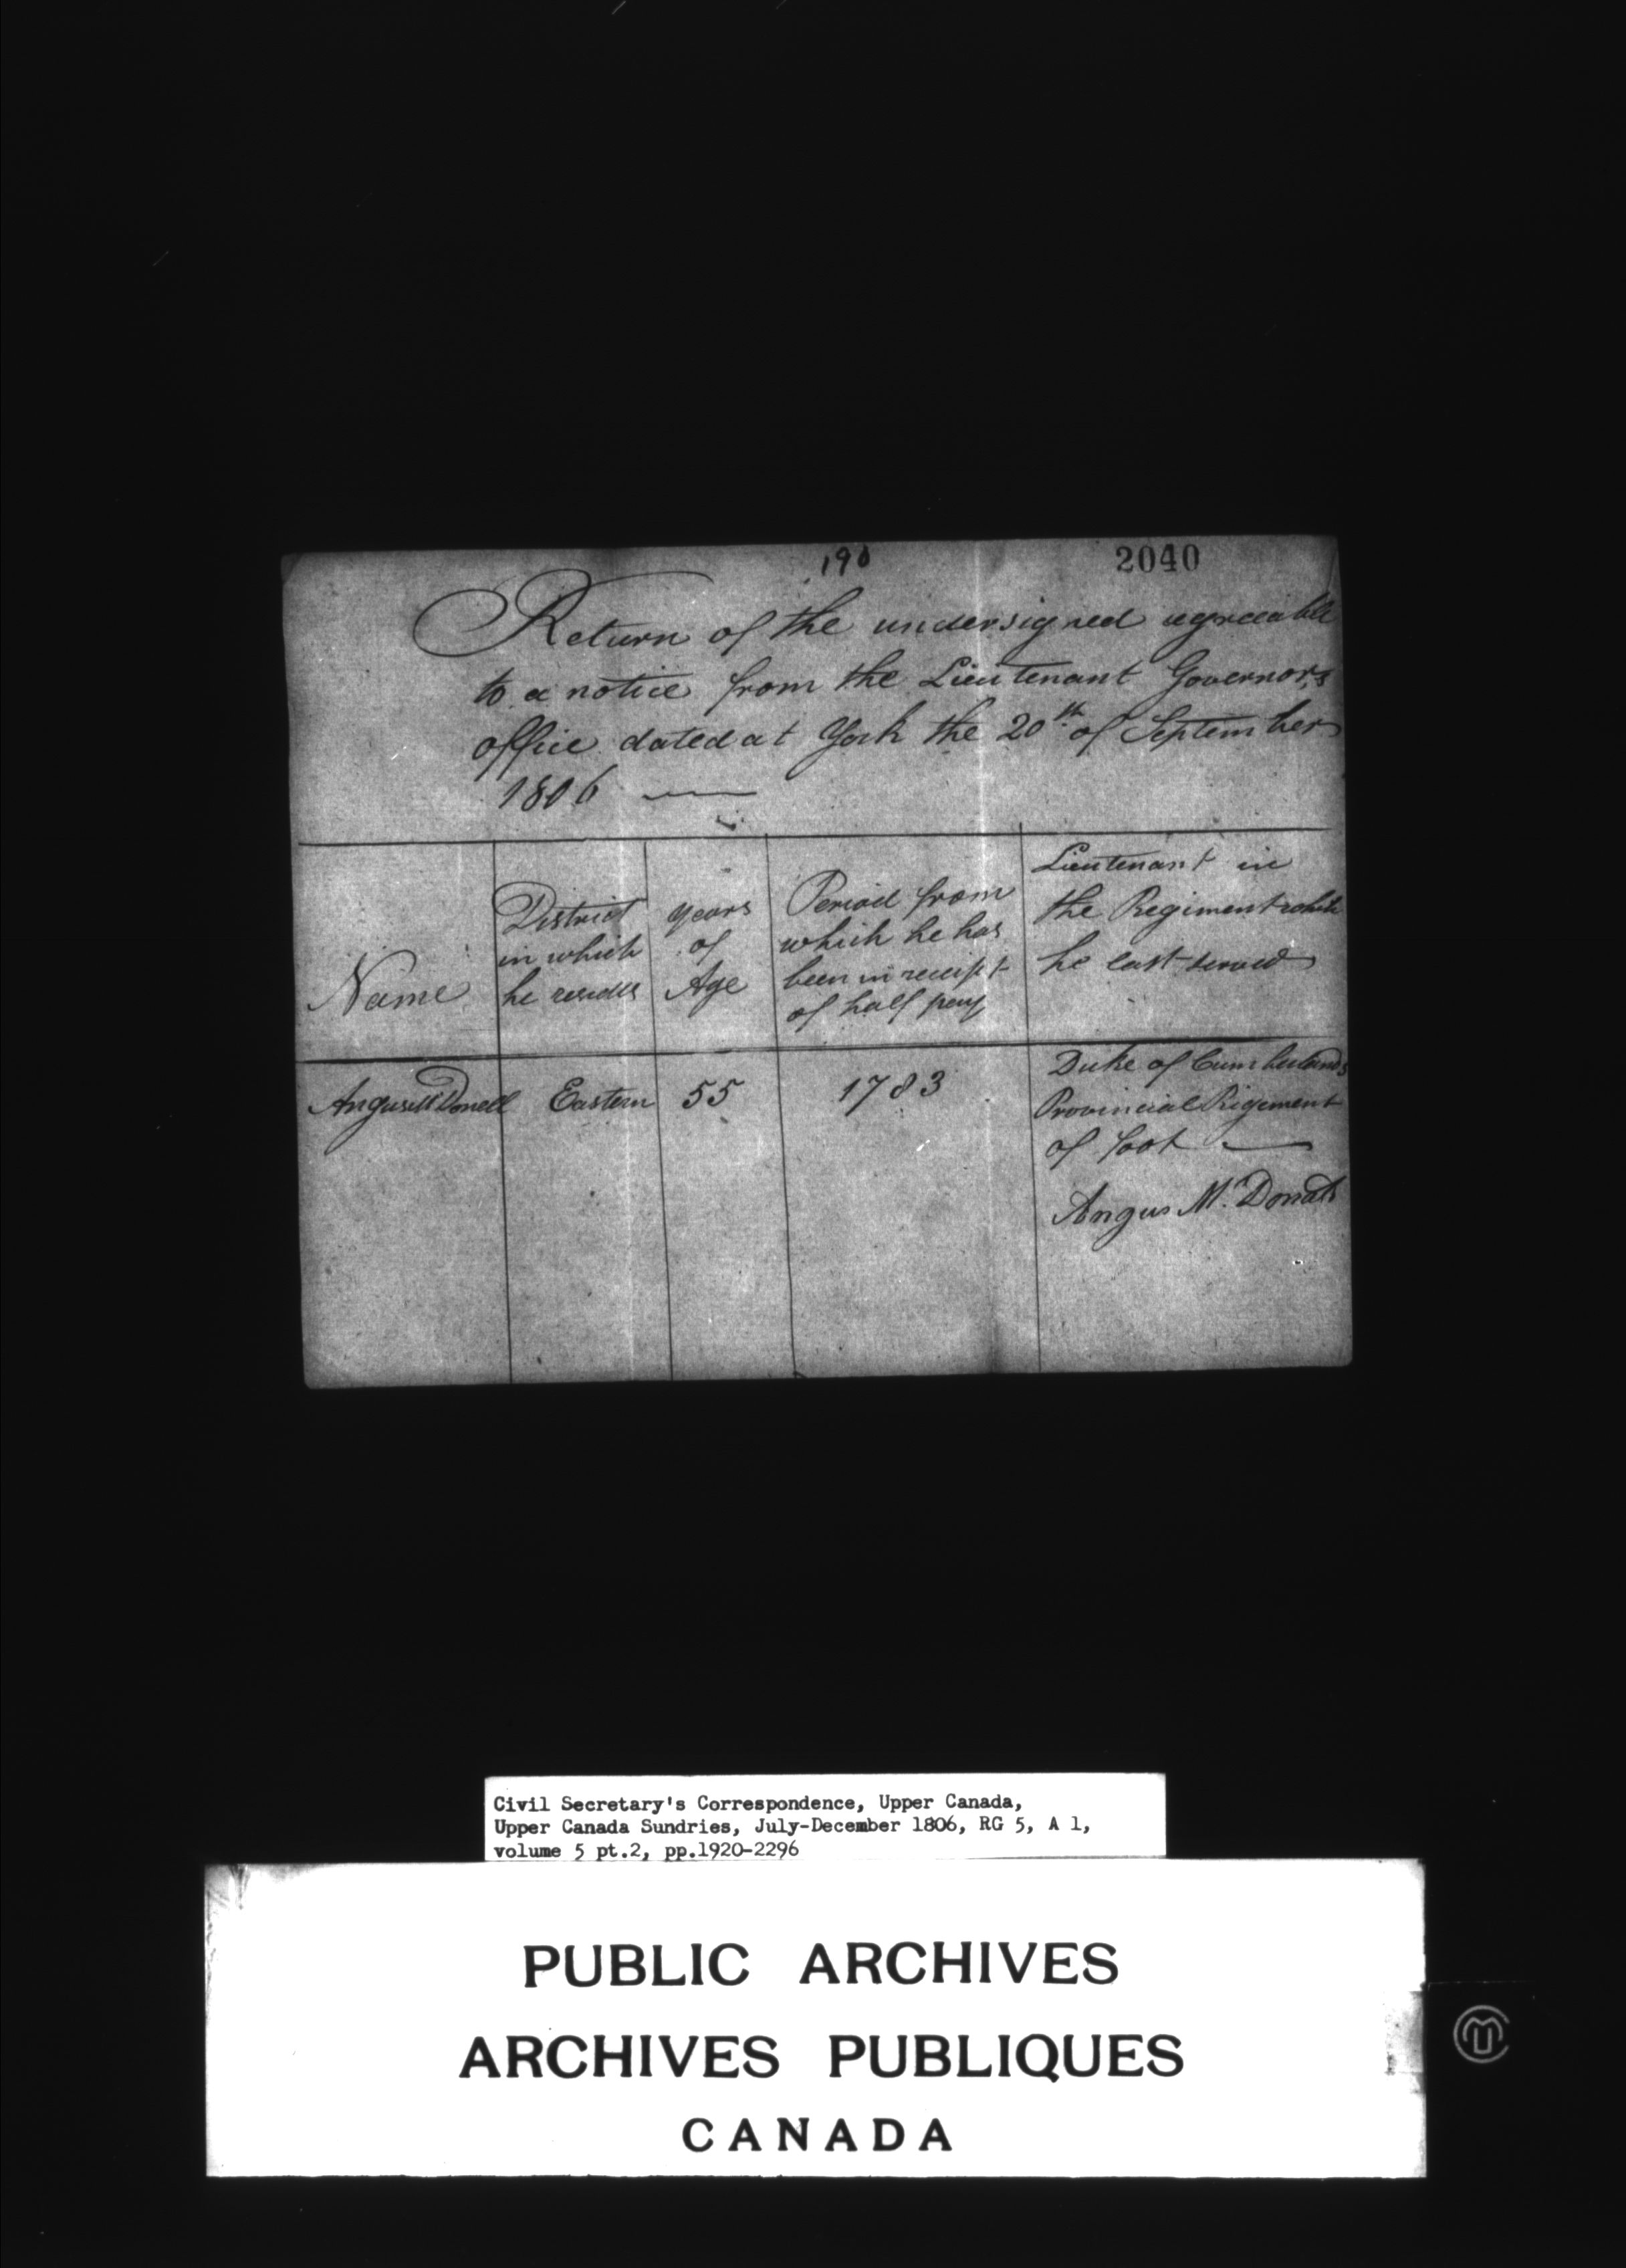 190
2040
Return of the undersigned agreeable
to a notice from the Lieutenant Governors
office dated at York the 20th of September
1806
Name
District
in which
he resides
years
of
Age
Period from
which he has
been in receipt
of half pay
Lieutenant in
the Regiment which
he last served
Angus McDonell
Eastern
55
1783
Duke of Cumberlands
Provincial Regiment
of foot
Angus McDonell
Civil Secretary's Correspondence, Upper Canada,
Upper Canada Sundries, July-December 1806, RG 5, A 1,
volume 5 pt.2, pp.1920-2296
PUBLIC ARCHIVES
ARCHIVES PUBLIQUES
CANADA